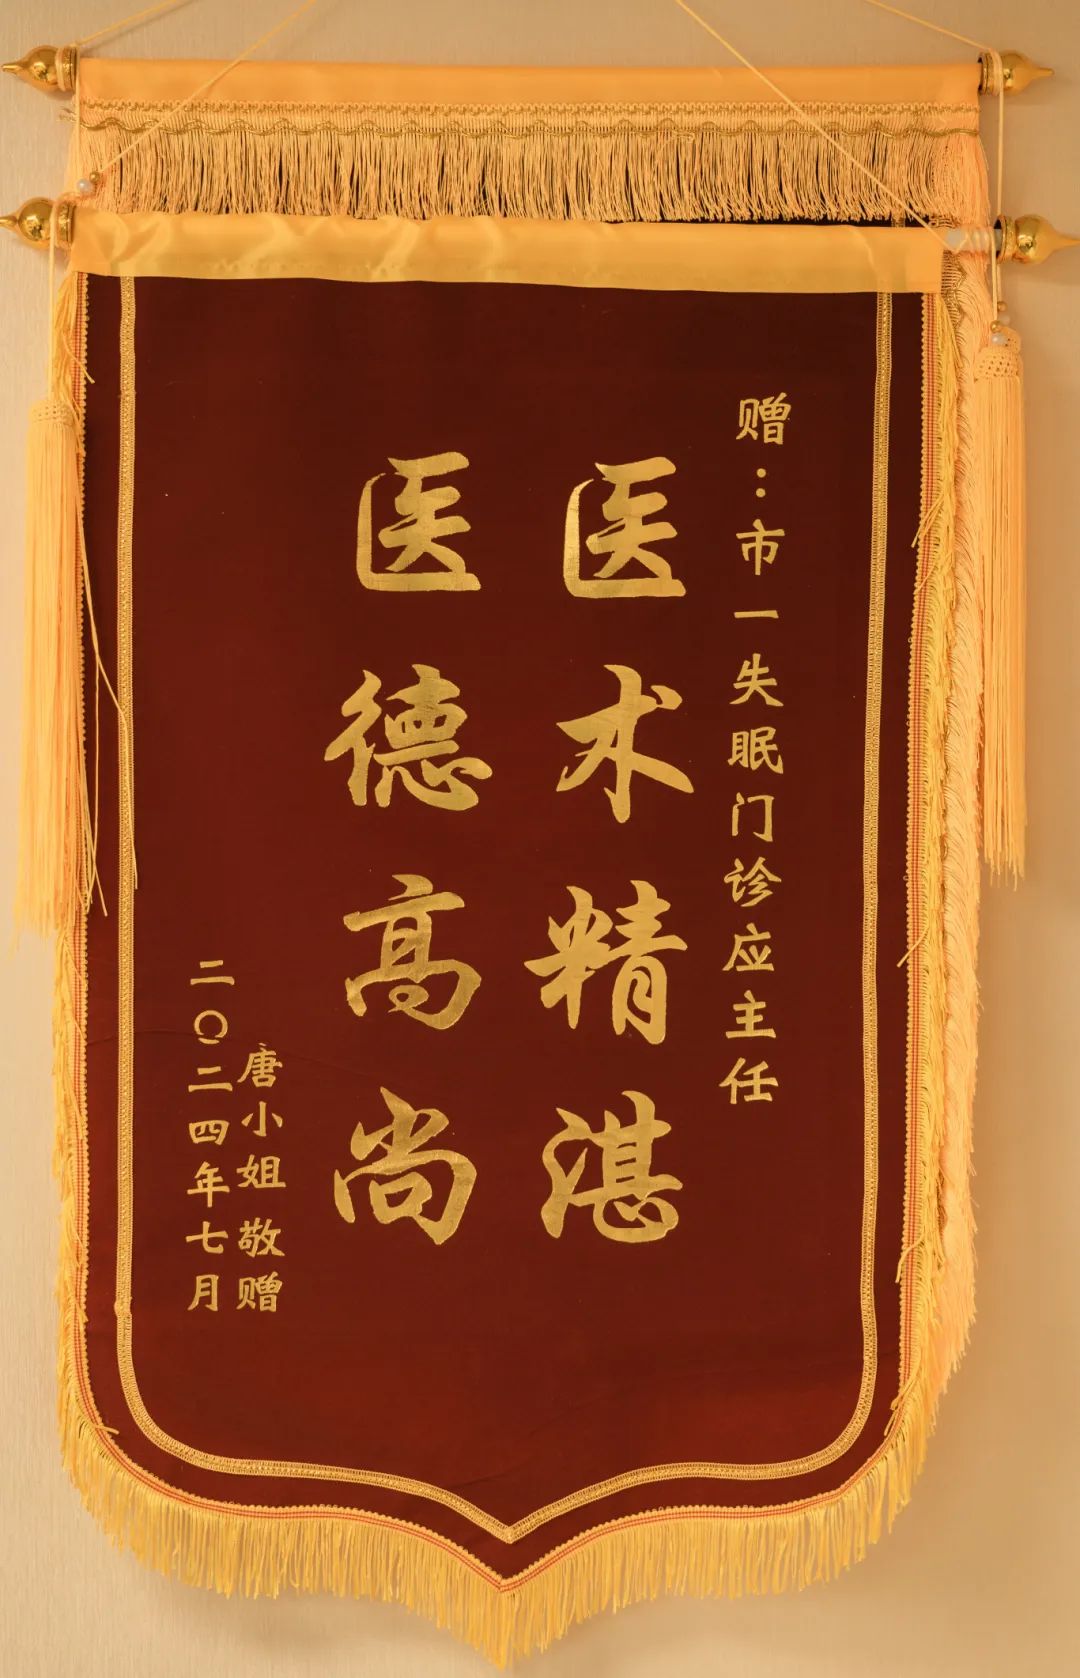 赠：市一失眠门诊应主任
医术精湛
医德高尚
唐小姐敬赠
二〇二四年七月